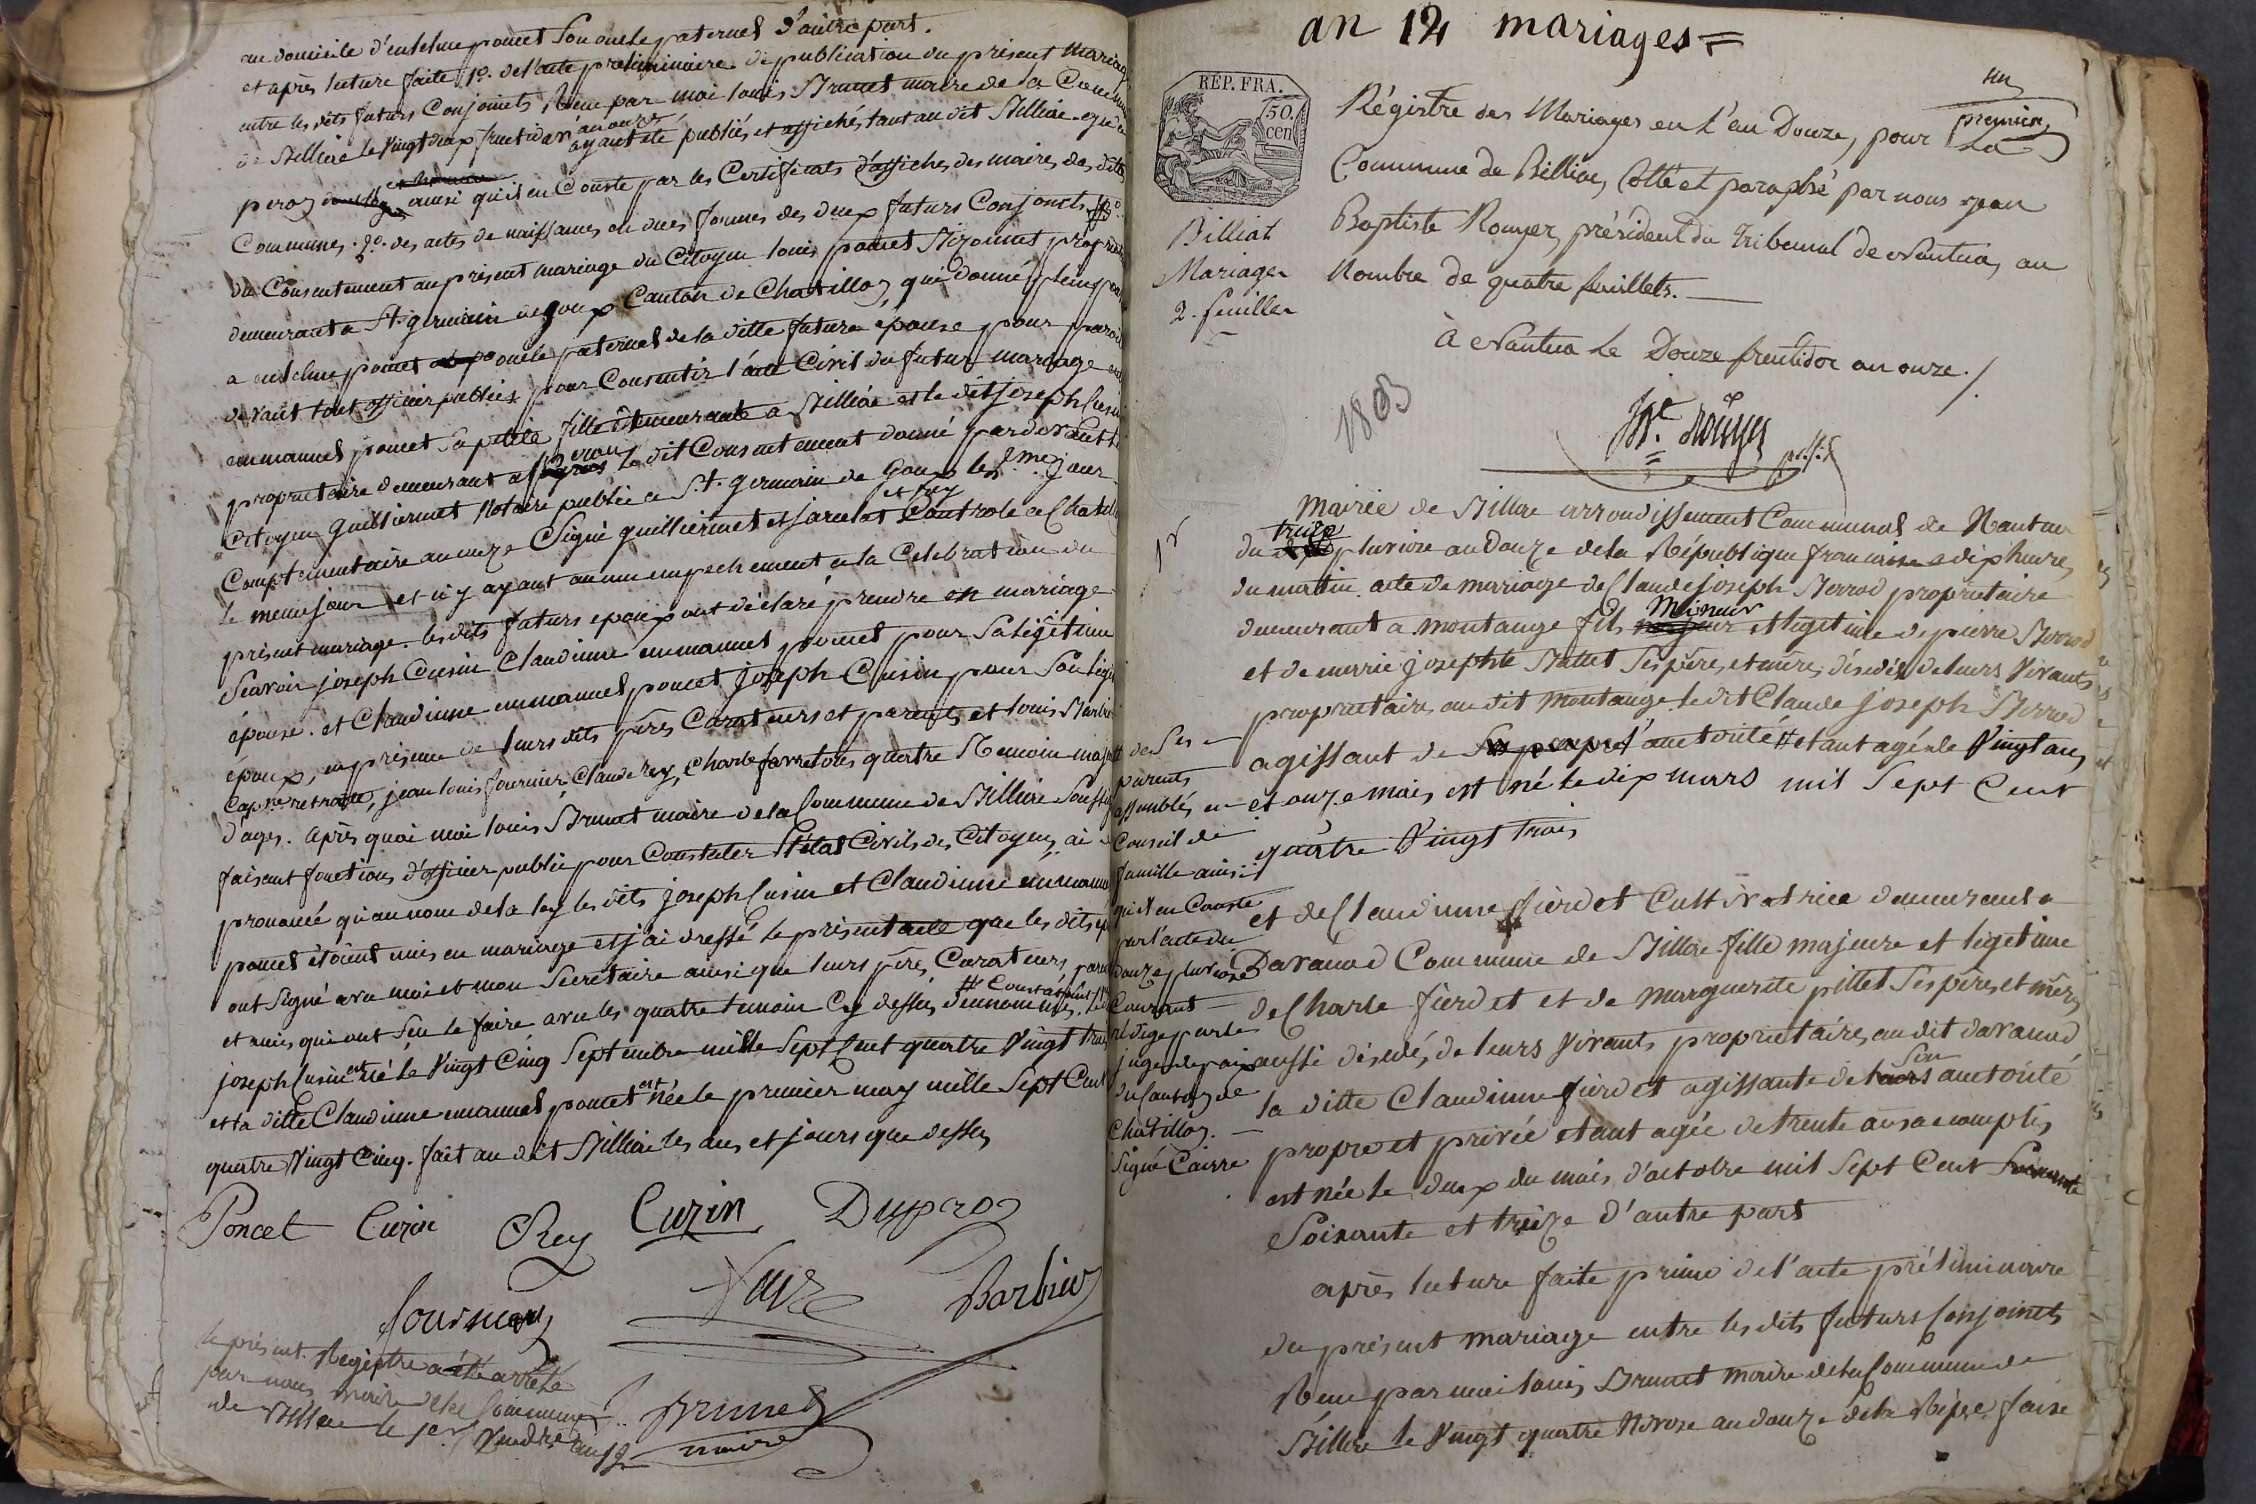 au domicile d'enselme poncet son oncle paternel d'autre part.
et après lecture faite 1o. de l'acte preliminaire de publication du présent mariage
entre les dits futurs Conjoints, Reçue par moi louis Brunet maire de la Commune
de Billiac le vingt deux fructidor an onze ayant été publiés et affichés tant au dit Billiac que
ainsi qu'il en Conste par les Certificats d'affiches des maires des dites
Communes. 2o. des actes de naissances en dues formes des deux futurs Conjoints 3o.
du Consentement au présent mariage du Citoyen louis poncet Bizonnet propriétaire
demeurant a St. germain de joux Canton de Chatillon, qui donne plein pouvoir
a enselme poncet oncle paternel de la ditte future épouse pour paroitre
devant tout officier public pour Consentir l'acte Civil du futur mariage
emmanuel poncet sa petite fille demeurante a Billiac et le dit joseph Cusin
propriétaire demeurant a le dit Consentement donné pardevant le
Citoyen guilliermet Notaire public a St. germain de Goux le 2me jour
Complementaire an onze Signé guilliermet et Controlé a Chatillon
le meme jour et n'y ayant aucun empechement a la Célébration du
présent mariage. les dits futurs epoux ont déclaré prendre en mariage
Scavoir joseph Cusin Claudinne emmanuel poncet pour Sa légitime
épouse. et Claudinne emmanuel poncet joseph Cusin pour Son légitime
époux, en présence de leurs dits pères Curateurs et parents et louis Barbier
Capne retraité, jean louis fournier, Claude Rey, Charle favre tous quatre Temoins majeurs
d'ages. Après quoi moi louis Brunet maire de la Commune de Billiac Soussigné
faisant fonctions d'officier public pour Constater l'état Civil des Citoyens, ai
prononcé qu'au nom de la loy les dits joseph Cusin et Claudinne emmanuel
poncet étoient unis en mariage et j'ai dressé le présent acte que les dits époux
ont Signé avec moi et mon Secretaire ainsi que leurs pères, Curateurs, parents
et amis qui ont Scu le faire avec les quatre temoins Cy dessus dennommés. le dit
joseph Cusin est né le Vingt Cinq Septembre mille Sept Cent quatre Vingt trois
et la ditte Claudinne emanuel poncet est née le premier may mille Sept Cent
quatre Vingt Cinq. fait au dit Billiac les ans et jours que dessus
Poncet Cuzin Rey Cuzin Duproz
fournier favre Barbier
le présent Registre a été arrêté
par nous maire de la Commune
de Billiac le 1er Vendre an 12
Brunet
maire
an 12 mariages =
RÉP. FRA.
50.
cen
Billiat
Mariages
2. feuilles
un
premier
Régistre des Mariages en L'an Douze, pour La
Commune de Billiac, Cotté et paraphé par nous Jean
Baptiste Rouyer, président du Tribunal de Nantua, au
Nombre de quatre feuillets.
à Nantua Le Douze fructidor an onze./.
Jn. Rouyer
1803
1r
Mairie de Billiac arrondissement Communal de Nantua
du treize pluviose an Douze de la République francaise a dix heures
du matin acte de mariage de Claude Joseph Berrod propriétaire
demeurant a montange fils Mineur et legitime de pierre Berrod
et de marie josephte Ballet Ses père, et mère, décédés de leurs Vivants
proprietaires au dit montange le dit Claude joseph Berrod
agissant de l'autorité # etant agé de Vingt ans
et onze mois, est né le dix mars mil Sept Cent
quatre Vingt trois
# de Ses
parents
assemblés en
Conseil de
famille ainsi
qu'il en Conste
par l'acte du
douze pluviose
Courant
rédigé par le
juge de paix
du Canton de
Chatillon.
Signé Cairre
et de Claudinne fierdet Cultivatrice demeurant a
Davanod Commune de Billiac fille majeure et legitime
de Charle fierdet et de marguerite pillet Ses père, et mère,
aussi décédés, de leurs Vivants proprietaires au dit davanod
la ditte Claudinne fierdet agissante de Son autorité
propre et privée etant agée de trente ans accomplis,
est née le deux du mois d'octobre mil Sept Cent
Soixante et treize d'autre part
après lecture faite primo de l'acte préliminaire
du présent mariage entre les dits futurs Conjoints
Reçue par moi louis Brunet maire de la Commune de
Billiac le Vingt quatre Nivose an douze de la Répe. faise